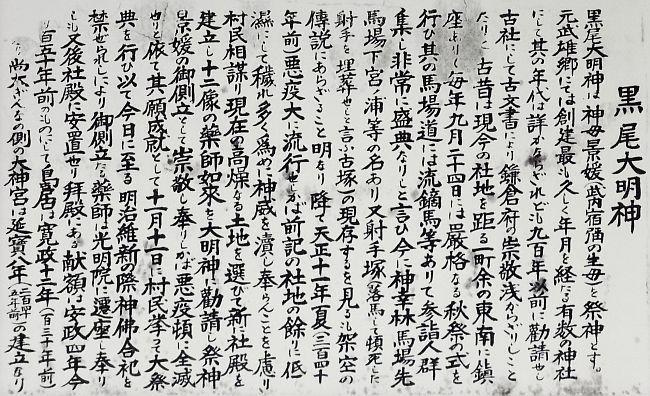 黒尾大明神
黒尾大明神は神母景媛(武内宿禰の生母)を祭神とす。
元武雄郷にては創建最も久しく年月を経たる有数の神社
にして其の年代は詳かならざれども九百年以前に勧請せし
古社にして古文書により鎌倉府の崇敬浅からざりしこと
たりく古昔は現今の社地を距る一町余の東南に鎮
座ありて毎年九月二十四日には厳格なる秋祭の式を
行ひ其の馬場道には流鏑馬等ありて参詣人群
集し非常に盛典なりしと言ひ今に神幸林馬場先
馬場下宮ノ浦等の名あり又射手塚(落馬して頓死した
射手を埋葬せしと言ふ古塚)の現存するを見るも架空の
伝説にあらざること明なり降て天正十一年夏(三百四十
年前)悪疫大に流行せしかば前記の社地の餘りに低
濕にして穢れ多く為めに神威を瀆し奉らんことを慮り
村民相謀り現在の高燥なる土地を選びて新に社殿を
建立し十二像の薬師如来を大明神に勧請し祭神
景媛の御側立として崇敬し奉りしかば悪疫頓に全滅
せりと依て其願成就として十一月十一日に村民挙って大祭
典を行ひ以て今日に至る明治維新の際神佛合祀を
禁せられしにより御側立たる薬師は光明院に遷座し奉り
しも又後社殿に安置せり拝殿にある献額は安政四年今
百五十年前のものにして鳥居は寛政十二年(百三十年前)
なり尚次ぎんなん側の大神宮は延寶八年(二百四十年前)の建立なり